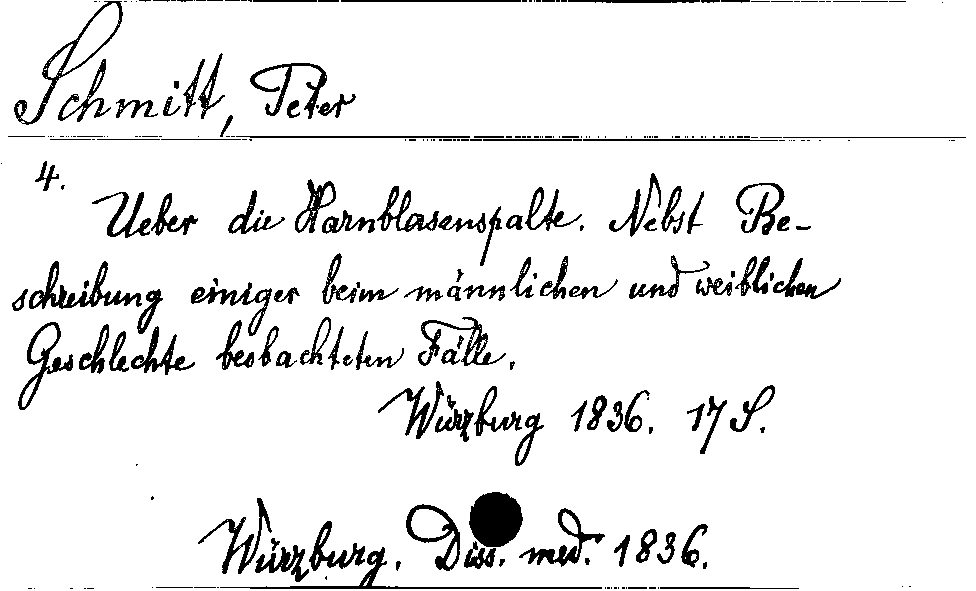 Schmitt, Peter
4.
Ueber die Harnblasenspalte. Nebst Be-
schreibung einiger beim männlichen und weiblichen
Geschlechte beobachteten Fälle.
Würzburg 1836. 17 S.
Würzburg. Diss. med. 1836.